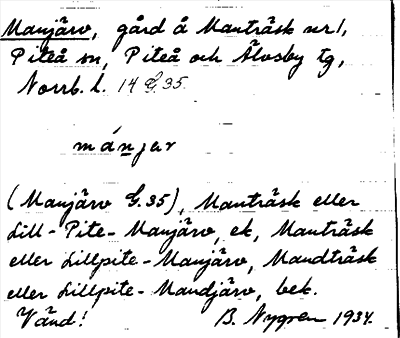 Manjärv, gård å Manträsk nr 1,
Piteå sn, Piteå och Älvsby tg,
Norrb. l. 14 G. 35.
mánjar
(Manjärv G. 35), Manträsk eller
Lill-Pite-Manjärv, ek, Manträsk
eller Lillpite-Manjärv, Mandträsk
eller Lillpite-Mandjärv, bek.
Vänd! B. Nygren 1934.